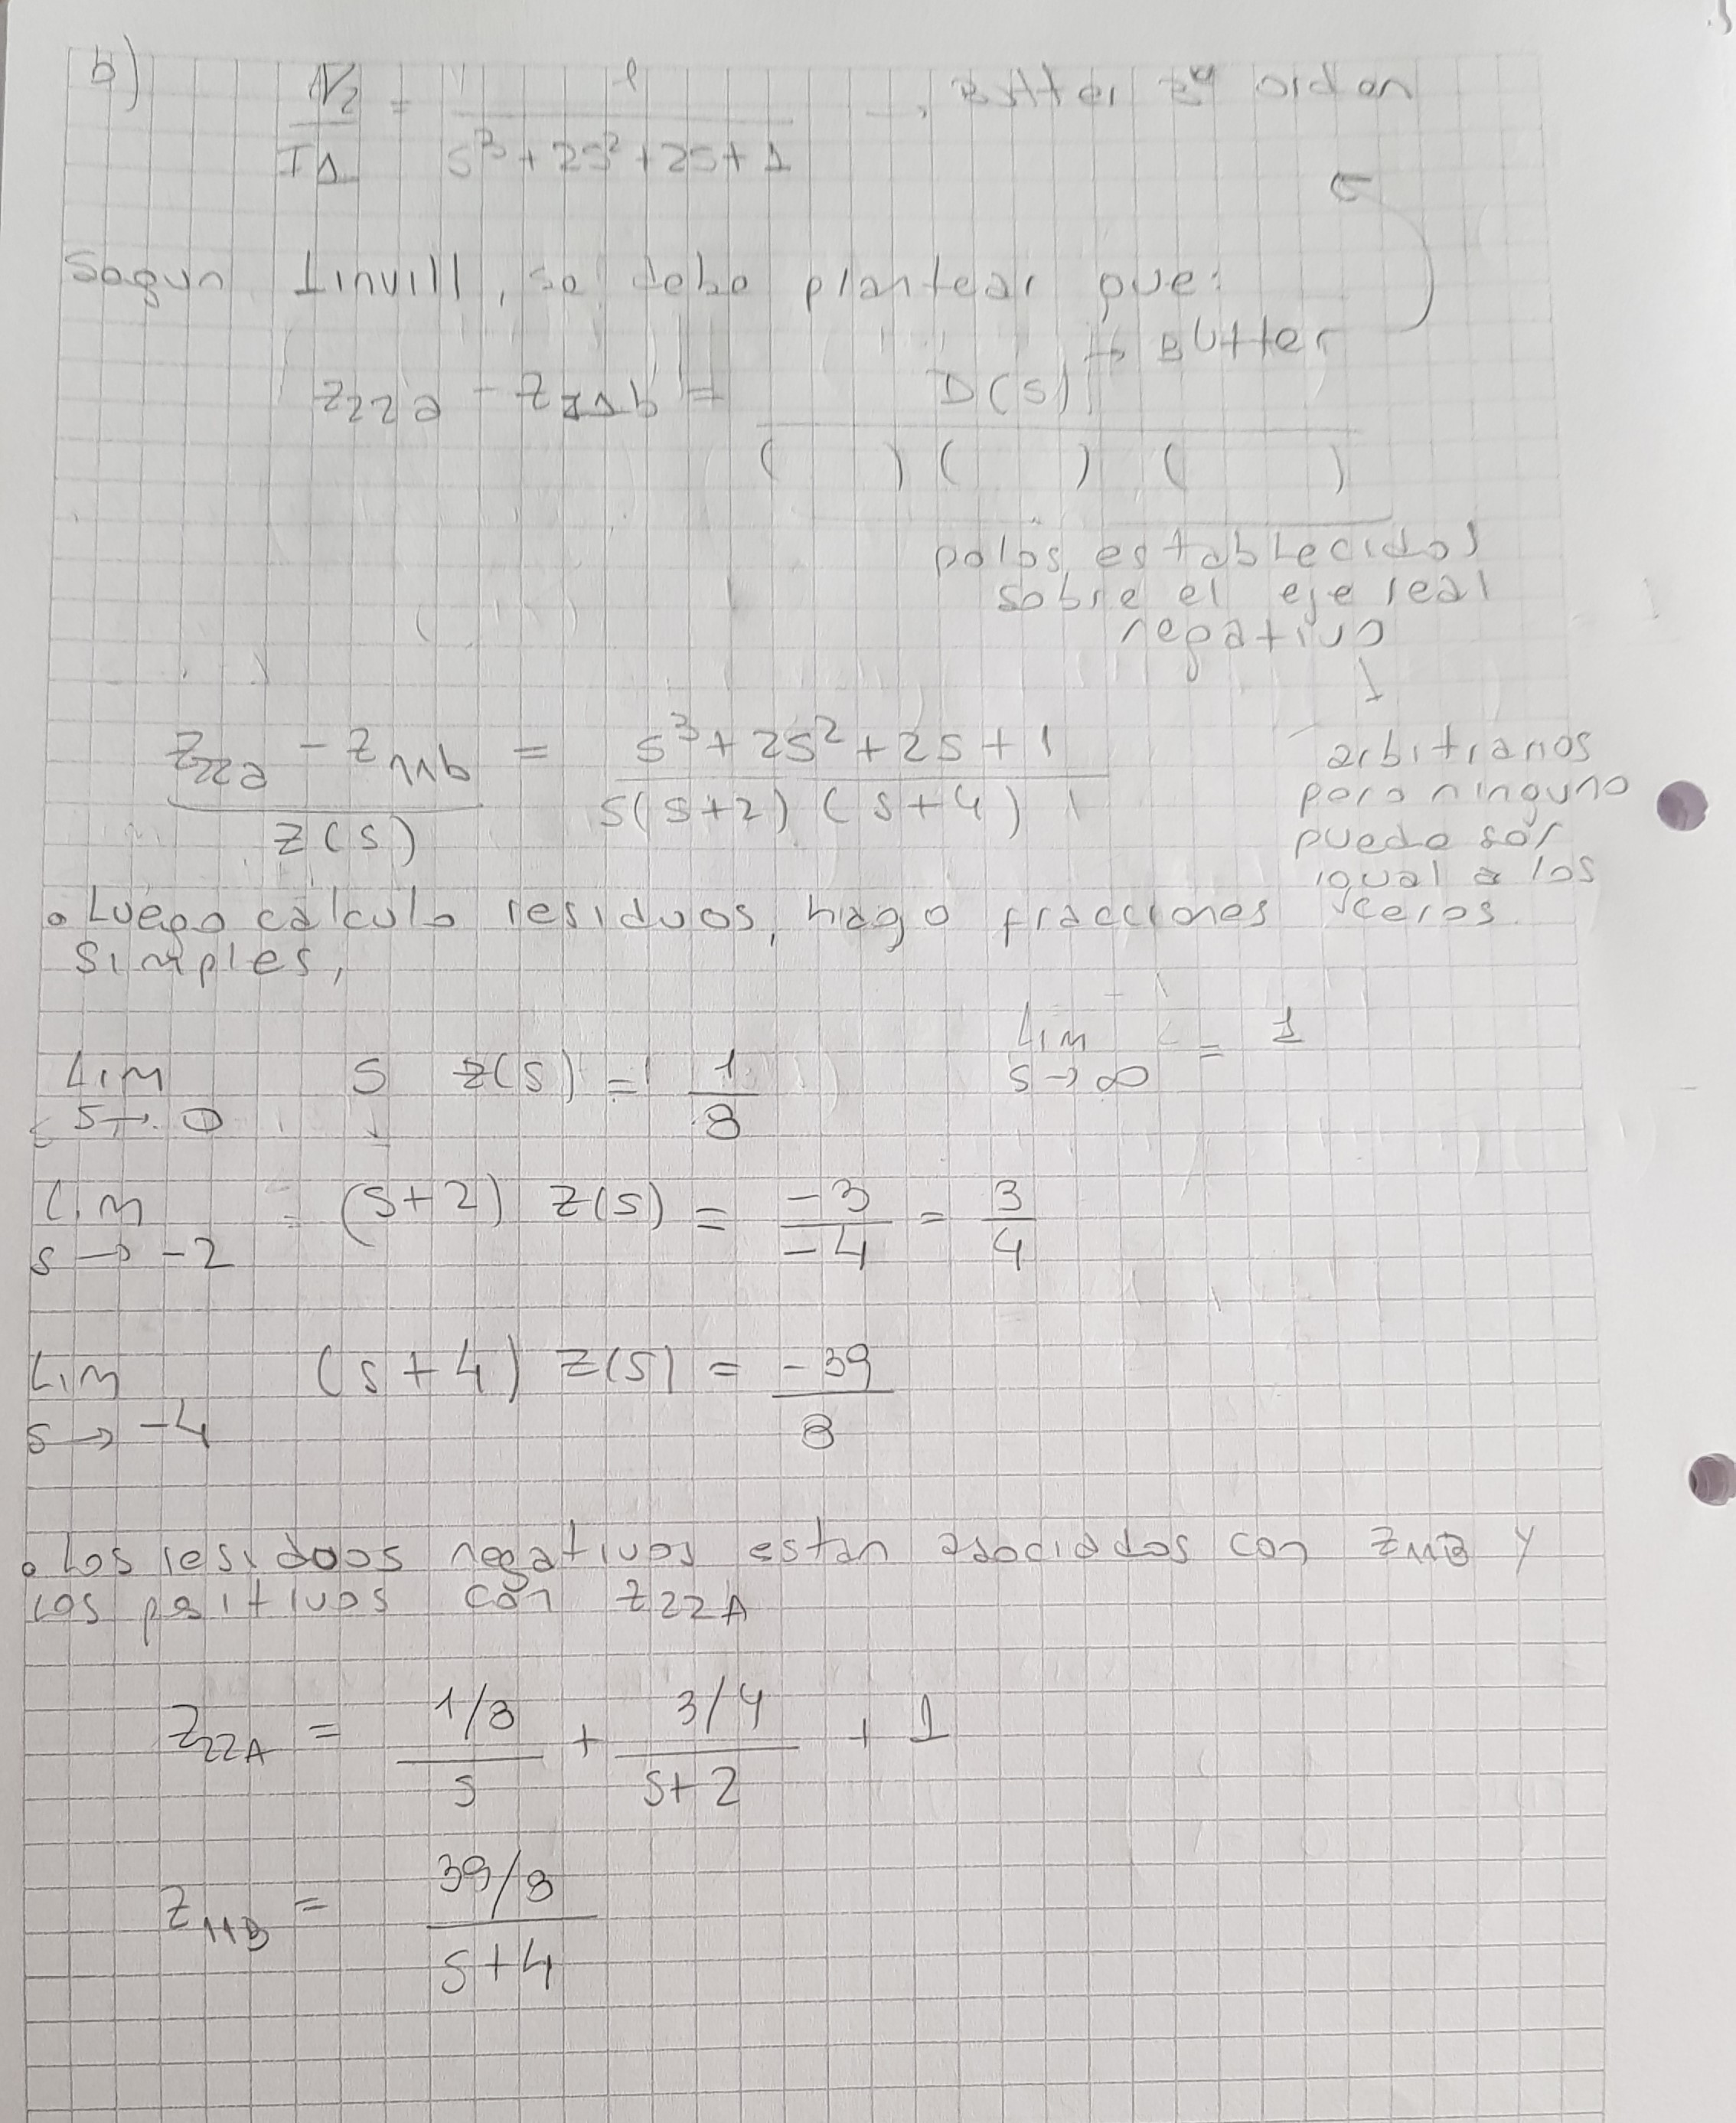 b) V2/I1 = 1/(s³+2s²+2s+1) → Butter 3er orden
Segun Linvill, se debe plantear que:
→ Butter
z22a - z11b = D(s)/( )( )( )
polos establecidos
sobre el eje real
negativo
↓
arbitrarios
pero ninguno
puede ser
igual a los
ceros.
(z22a - z11b)/z(s) = (s³+2s²+2s+1)/(s(s+2)(s+4))
• Luego calculo residuos, hago fracciones
simples,
Lim s→0 s z(s) = 1/8
Lim s→∞ = 1
Lim s→-2 (s+2) z(s) = -3/-4 = 3/4
Lim s→-4 (s+4) z(s) = -39/8
• Los residuos negativos estan asociados con z11B y
los positivos con z22A
z22A = (1/8)/s + (3/4)/(s+2) + 1
z11B = (39/8)/(s+4)